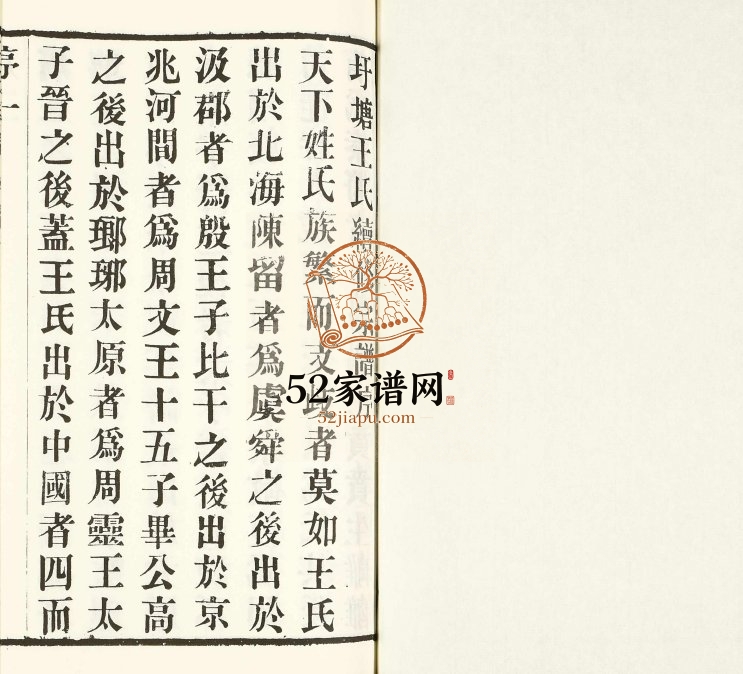 圩塘王氏續修宗譜序
天下姓氏族繁而支者莫如王氏
出於北海陳留者為虞舜之後出於
汲郡者為殷王子比干之後出於京
兆河間者為周文王十五子畢公高
之後出於瑯琊太原者為周靈王太
子晉之後蓋王氏出於中國者四而
序一
52家谱网
52jiapu.com